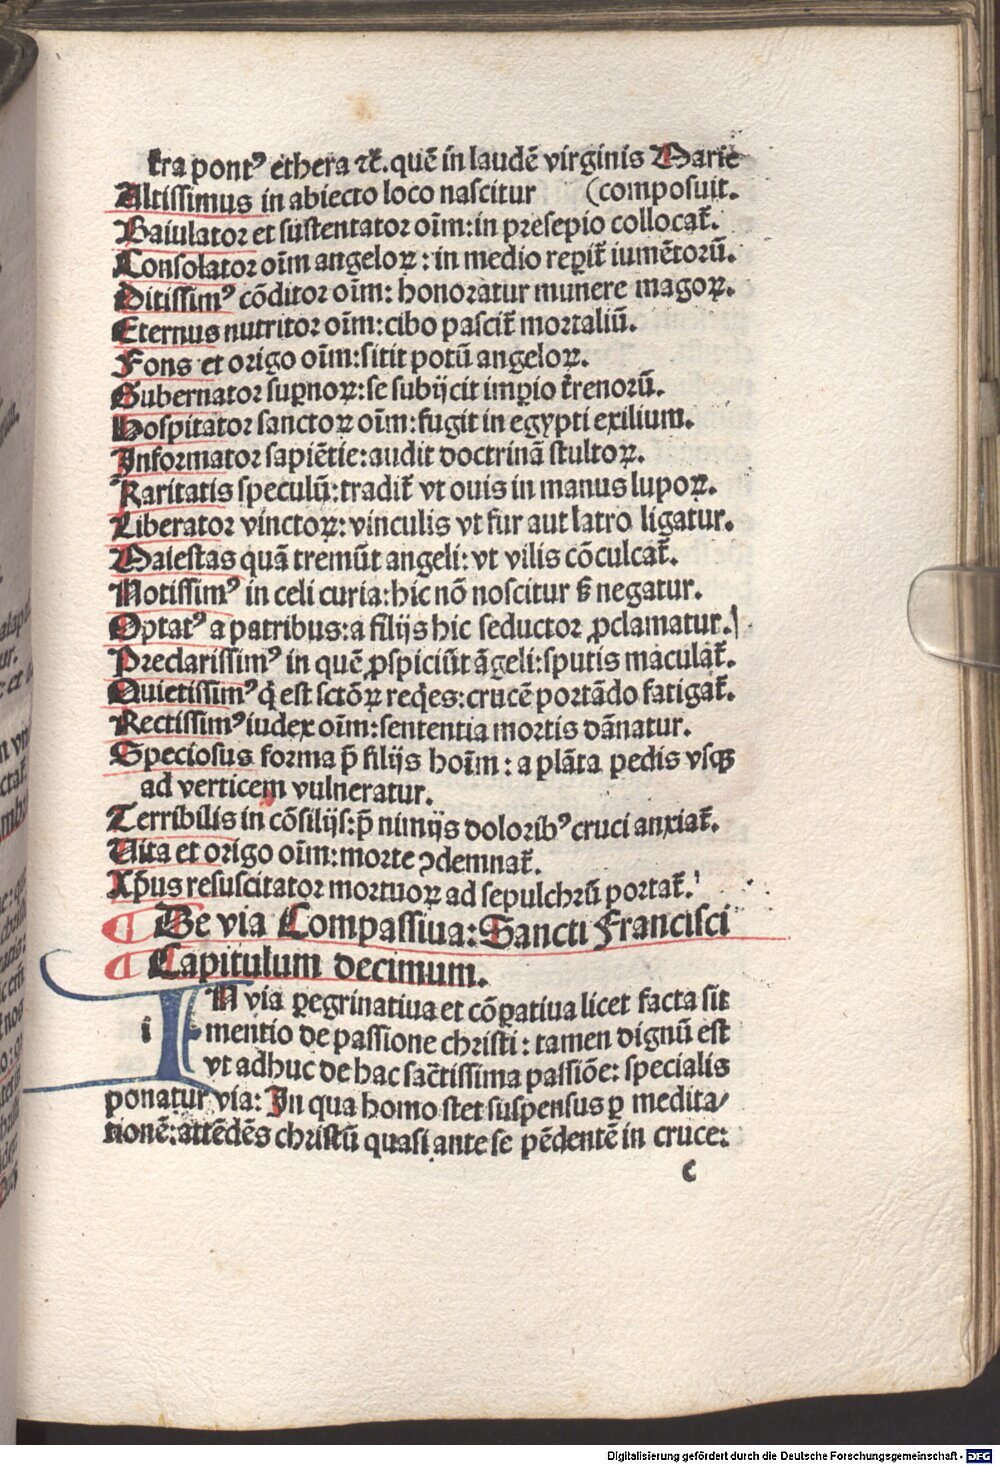 t̃ra pontꝰ ethera ⁊c̃. quē in laudē virginis Marie
Altissimus in abiecto loco nascitur (composuit.
Baiulator et sustentator oīm: in presepio collocat̃.
Consolator oīm angeloꝝ: in medio reꝑit̃ iumētorū.
Ditissimꝰ cōditor oīm: honoratur munere magoꝝ.
Eternus nutritor oīm: cibo pascit̃ mortaliū.
Fons et origo oīm: sitit potū angeloꝝ.
Gubernator suꝑnoꝝ: se subijcit imꝑio t̃renorū.
Hospitator sanctoꝝ oīm: fugit in egypti exilium.
Informator sapiētie: audit doctrinā stultoꝝ.
Karitatis speculū: tradit̃ vt ouis in manus lupoꝝ.
Liberator vinctoꝝ: vinculis vt fur aut latro ligatur.
Maiestas quā tremūt angeli: vt vilis cōculcat̃.
Notissimꝰ in celi curia: hic nō noscitur ß negatur.
Optatꝰ a patribus: a filijs hic seductor ꝓclamatur.
Preclarissimꝰ in quē ꝓspiciūt āgeli: sputis maculat̃.
Quietissimꝰ q̇ est sctōꝝ req̇es: crucē portādo fatigat̃.
Rectissimꝰ iudex oīm: sententia mortis dānatur.
Speciosus forma p̄ filijs hoīm: a plāta pedis vsqꝫ
ad verticem vulneratur.
Terribilis in cōsilijs: p̄ nimijs doloribꝰ cruci anxiat̃.
Uita et origo oīm: morte ꝯdemnat̃.
Xp̄us resuscitator mortuoꝝ ad sepulchrū portat̃.
¶ De via Compassiua: Sancti Francisci
¶ Capitulum decimum.
i IN via ꝑegrinatiua et cōꝑatiua licet facta sit
mentio de passione christi: tamen dignū est
vt adhuc de hac sac̄tissima passiōe: specialis
ponatur via: In qua homo stet suspensus ꝑ medita/
tionē: attēdēs christū quasi ante se pēdentē in cruce:
c
Digitalisierung gefördert durch die Deutsche Forschungsgemeinschaft - DFG